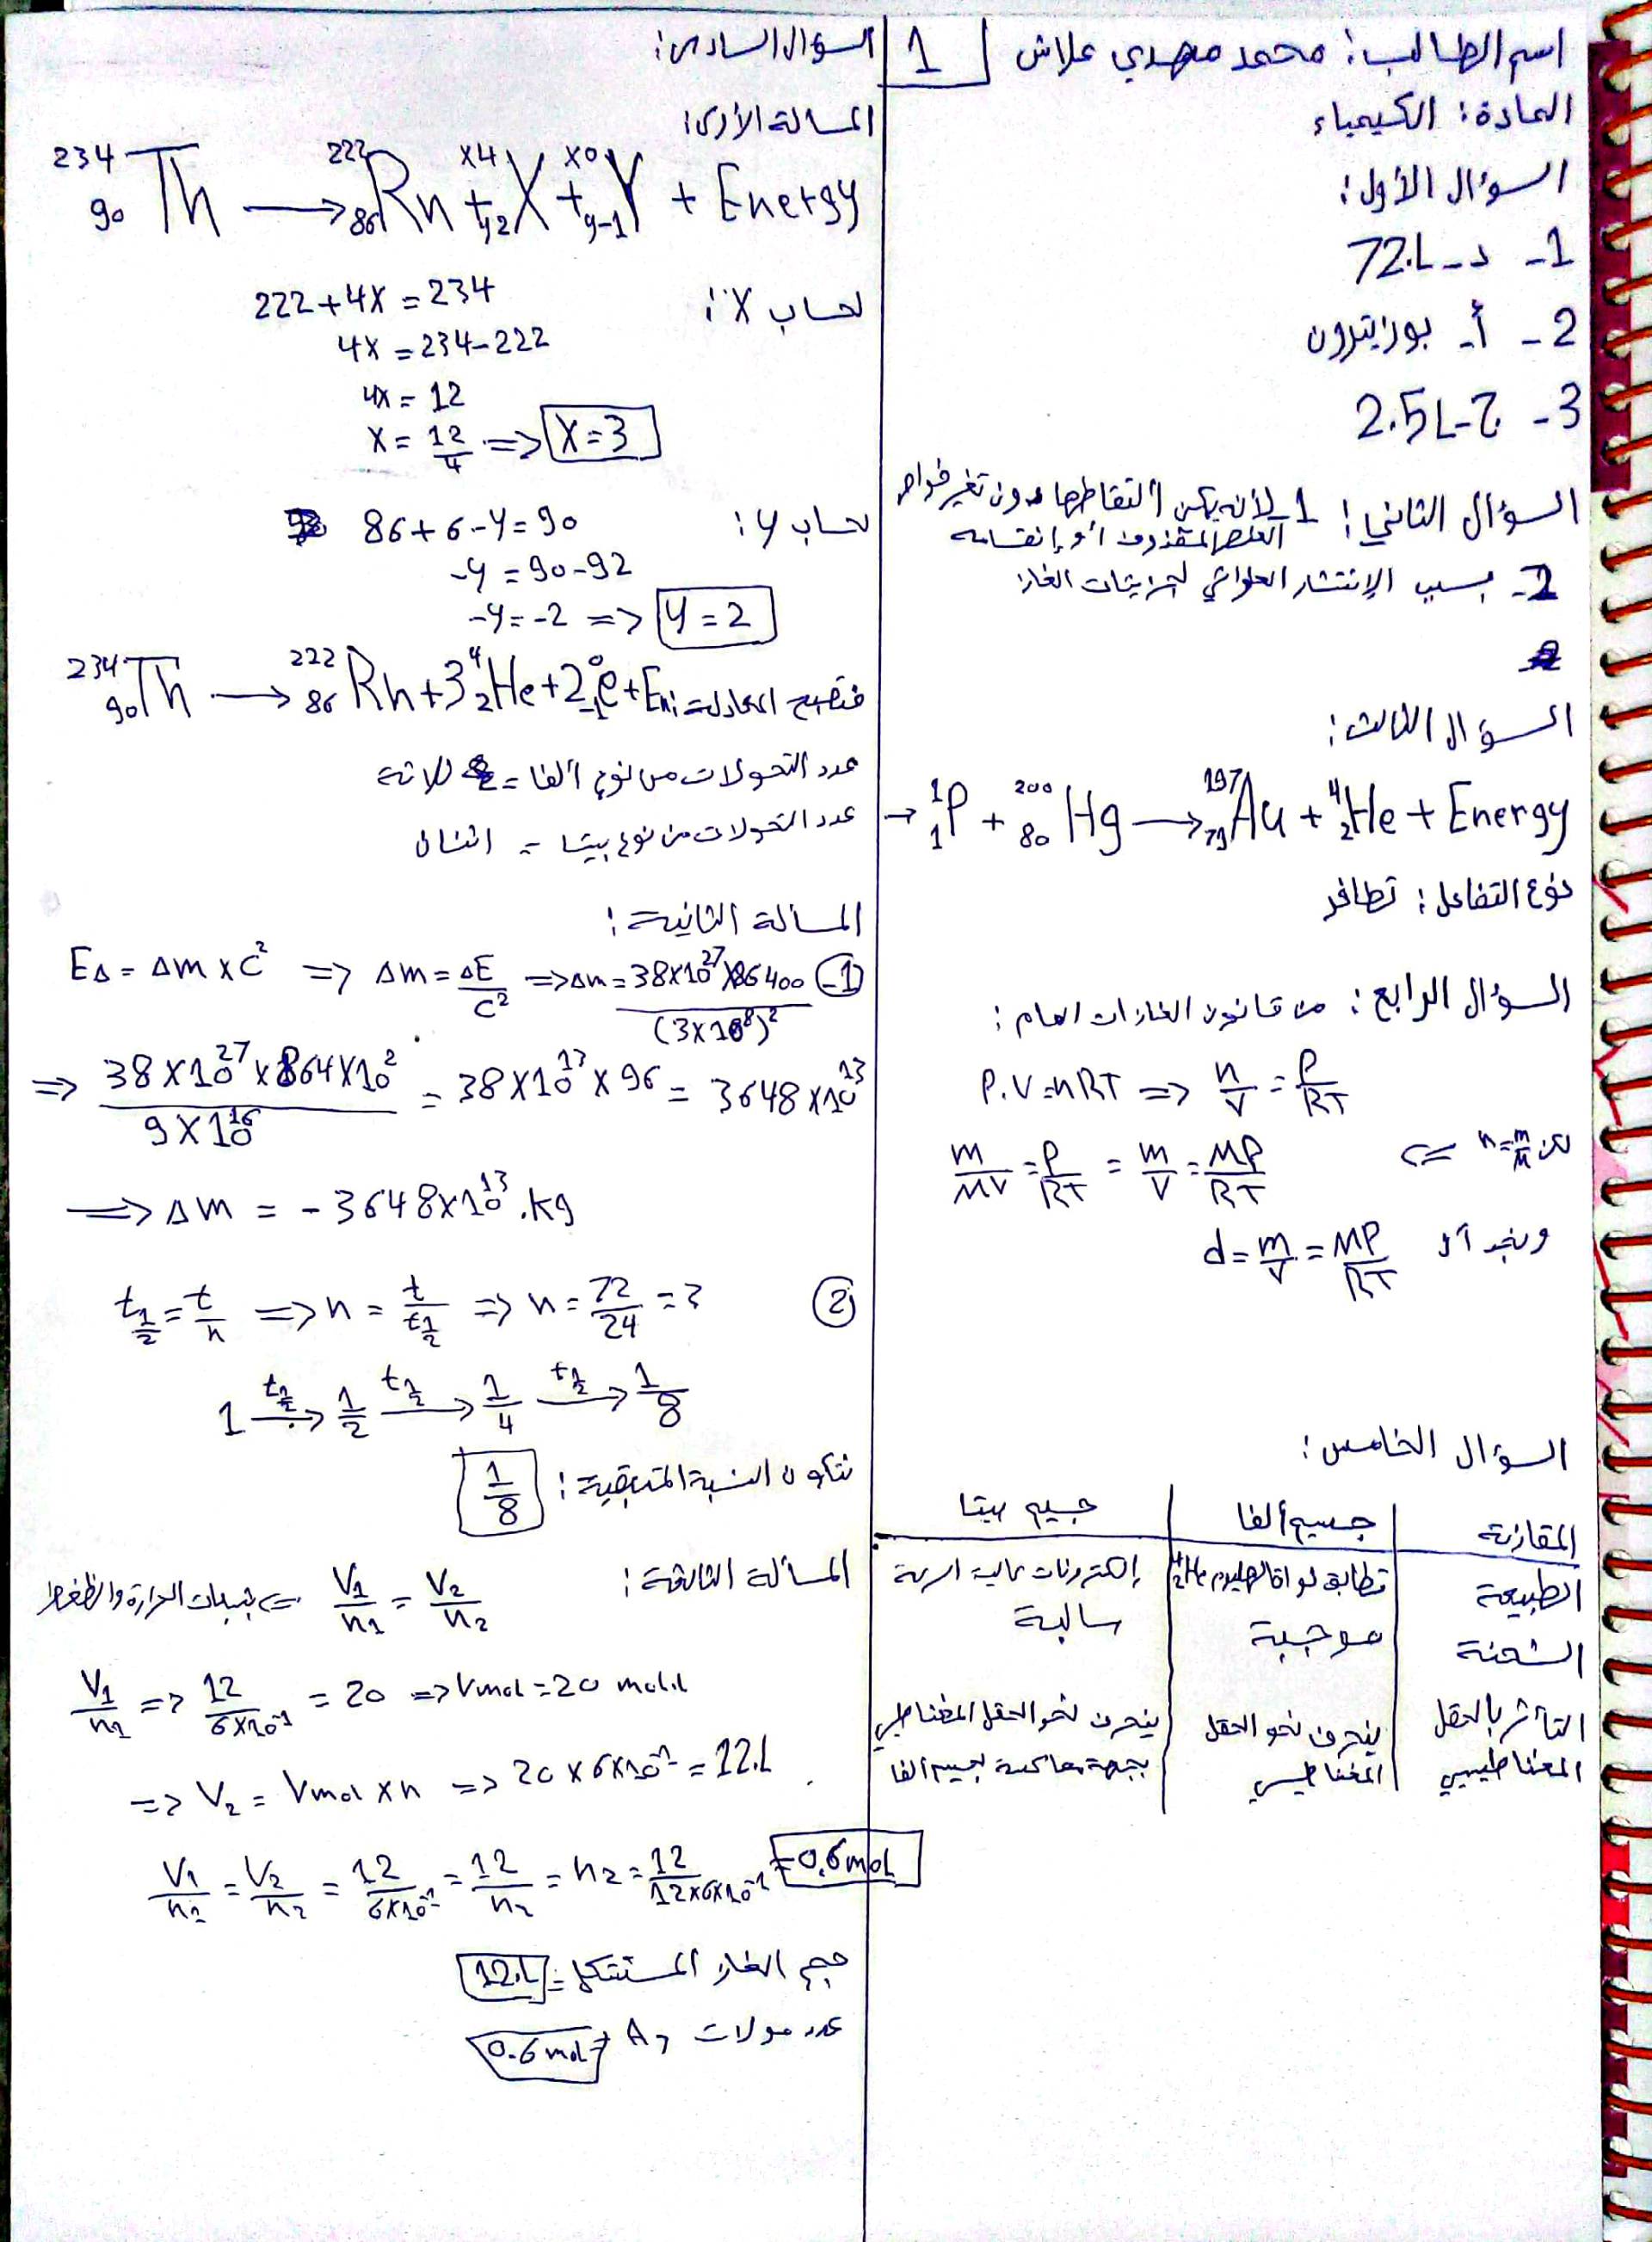 اسم الطالب: محمد مهدي علاش
1
المادة: الكيمياء
السؤال الأول:
1- د- 72.L
2- أ- بوزيترون
3- ج- 2.5L
السؤال الثاني: 1- لأنه يمكن التقاطها دون تغير خواص
العنصر المقذوف أو إنقسامه
2- بسبب الإنتشار العشوائي لجزيئات الغاز
السؤال الثالث:
→ ¹₁P + ²⁰⁰₈₀Hg → ¹⁹⁷₇₉Au + ⁴₂He + Energy
نوع التفاعل: تطافر
السؤال الرابع: من قانون الغازات العام:
P.V=nRT => n/V = P/RT
لكن n=m/M <=
m/MV = P/RT = m/V = MP/RT
ونجد أن d = m/V = MP/RT
السؤال الخامس:
المقارنة | جسيم ألفا | جسيم بيتا
الطبيعة | تطابق نواة الهليوم ⁴₂He | إلكترونات عالية السرعة
الشحنة | موجبة | سالبة
التأثر بالحقل المغناطيسي | ينحرف نحو الحقل المغناطيسي | ينحرف نحو الحقل المغناطيسي بجهة معاكسة لجسيم ألفا
السؤال السادس:
المسألة الأولى:
²³⁴₉₀Th → ²²²₈₆Rn + ˣ⁴ᵧ₂X + ˣ⁰ᵧ₋₁Y + Energy
لحساب X:
222+4X = 234
4X = 234-222
4X = 12
X = 12/4 => X=3
لحساب y:
86+6-y=90
-y = 90-92
-y = -2 => y = 2
فتصبح المعادلة:
²³⁴₉₀Th → ²²²₈₆Rn + 3⁴₂He + 2⁰₋₁e + En
عدد التحولات من نوع ألفا = ثلاثة
عدد التحولات من نوع بيتا = اثنان
المسألة الثانية:
1- EΔ = Δm x C² => Δm = ΔE/C² => Δm = 38x10²⁷x86400/(3x10⁸)²
=> 38x10²⁷x864x10²/9x10¹⁶ = 38x10¹³x96 = 3648x10¹³
=> Δm = -3648x10¹³.kg
2 t½ = t/n => n = t/t½ => n = 72/24 = 3
1 —t½→ 1/2 —t½→ 1/4 —t½→ 1/8
فتكون النسبة المتبقية: 1/8
المسألة الثالثة:
V₁/n₁ = V₂/n₂ <= بثبات الحرارة والضغط
V₁/n₁ => 12/6x10⁻¹ = 20 => Vmol = 20 mol.l
=> V₂ = Vmol x n => 20x6x10⁻¹ = 12.L
V₁/n₁ = V₂/n₂ = 12/6x10⁻¹ = 12/n₂ = n₂ = 12/12x6x10⁻¹ = 0,6mol
حجم الغاز المتشكل = 12.L
عدد مولات A = 0.6 mol